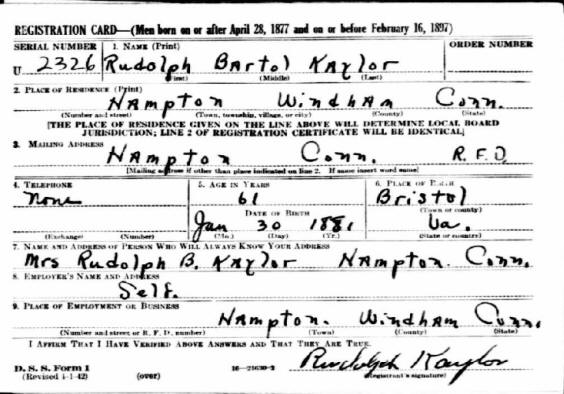 REGISTRATION CARD—(Men born on or after April 28, 1877 and on or before February 16, 1897)
SERIAL NUMBER 1. NAME (Print) ORDER NUMBER
U 2326 Rudolph Bartol Kaylor
(First) (Middle) (Last)
2. PLACE OF RESIDENCE (Print)
Hampton Windham Conn.
(Number and street) (Town, township, village, or city) (County) (State)
[THE PLACE OF RESIDENCE GIVEN ON THE LINE ABOVE WILL DETERMINE LOCAL BOARD
JURISDICTION; LINE 2 OF REGISTRATION CERTIFICATE WILL BE IDENTICAL]
3. MAILING ADDRESS
Hampton Conn. R.F.D.
[Mailing address if other than place indicated on line 2. If same insert word same]
4. TELEPHONE 5. AGE IN YEARS 6. PLACE OF BIRTH
None 61 Bristol
DATE OF BIRTH (Town or county)
Jan 30 1881 Va.
(Exchange) (Number) (Mo.) (Day) (Yr.) (State or country)
7. NAME AND ADDRESS OF PERSON WHO WILL ALWAYS KNOW YOUR ADDRESS
Mrs Rudolph B. Kaylor Hampton. Conn.
8. EMPLOYER'S NAME AND ADDRESS
Self.
9. PLACE OF EMPLOYMENT OR BUSINESS
Hampton. Windham Conn.
(Number and street or R. F. D. number) (Town) (County) (State)
I AFFIRM THAT I HAVE VERIFIED ABOVE ANSWERS AND THAT THEY ARE TRUE.
Rudolph Kaylor
D. S. S. Form 1
(Revised 4-1-42) (over) 16—21630-2 (Registrant's signature)